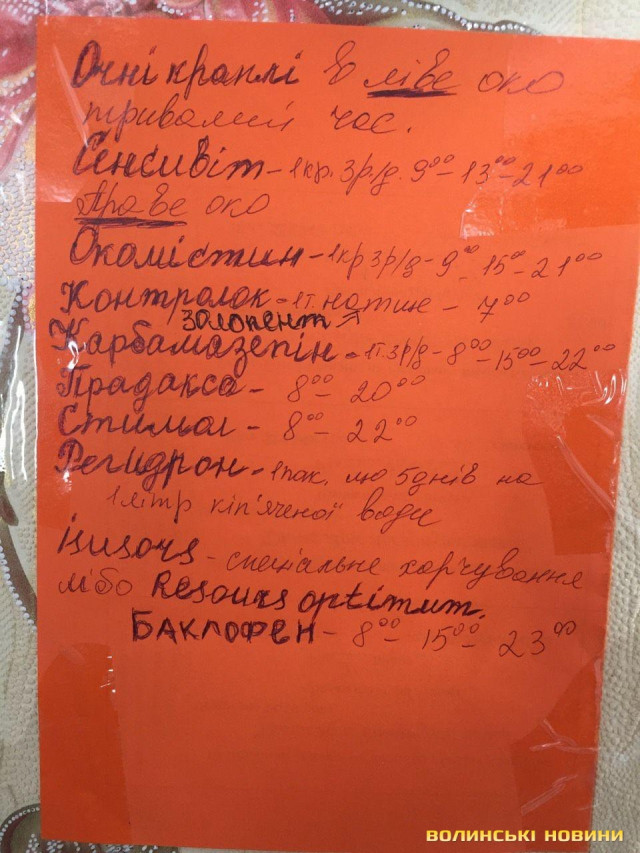 Очні краплі в ліве око
тривалий час.
Сенсивіт - 1кр. 3р/д. 9⁰⁰ - 13⁰⁰ - 21⁰⁰
Праве око
Окомістин - 1кр 3р/д - 9⁰⁰ 15⁰⁰ - 21⁰⁰
Контролок - 1т. натще - 7⁰⁰
золопент
Карбамазепін - 1т. 3р/д - 8⁰⁰ - 15⁰⁰ - 22⁰⁰
Прадакса - 8⁰⁰ - 20⁰⁰
Стимол - 8⁰⁰ - 22⁰⁰
Регидрон - 1пак. по 5днів на
1 літр кіп'яченої води
- спеціальне харчування
лібо Resours optimum.
БАКЛОФЕН - 8⁰⁰ - 15⁰⁰ - 23⁰⁰
ВОЛИНСЬКІ НОВИНИ